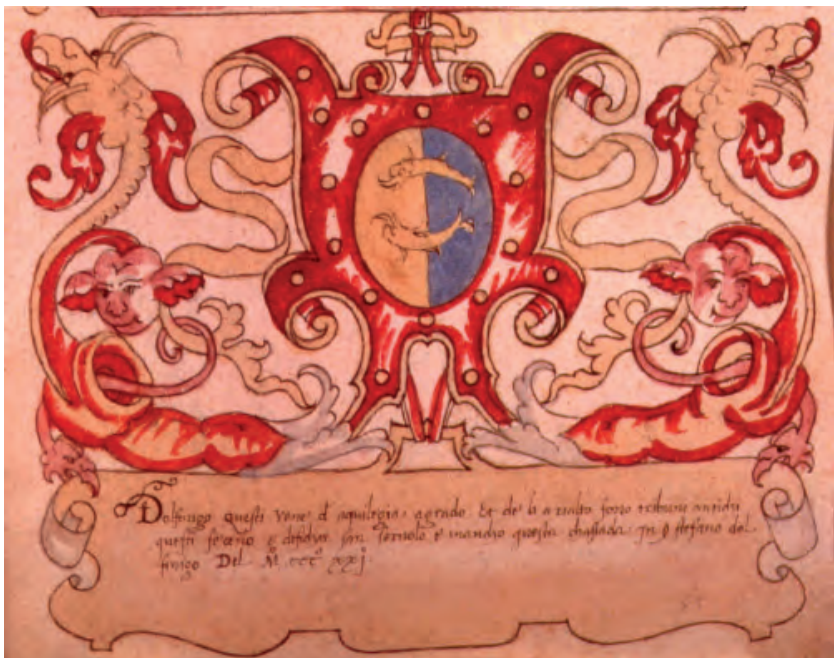 Dolfinigo questi vene d aquilegia, agrado Et de li a rialto forno tribuni antichi
questi fe cero san servolo e mancho questa chassada In ṣ stefano dol
finigo Del M ccc xxj